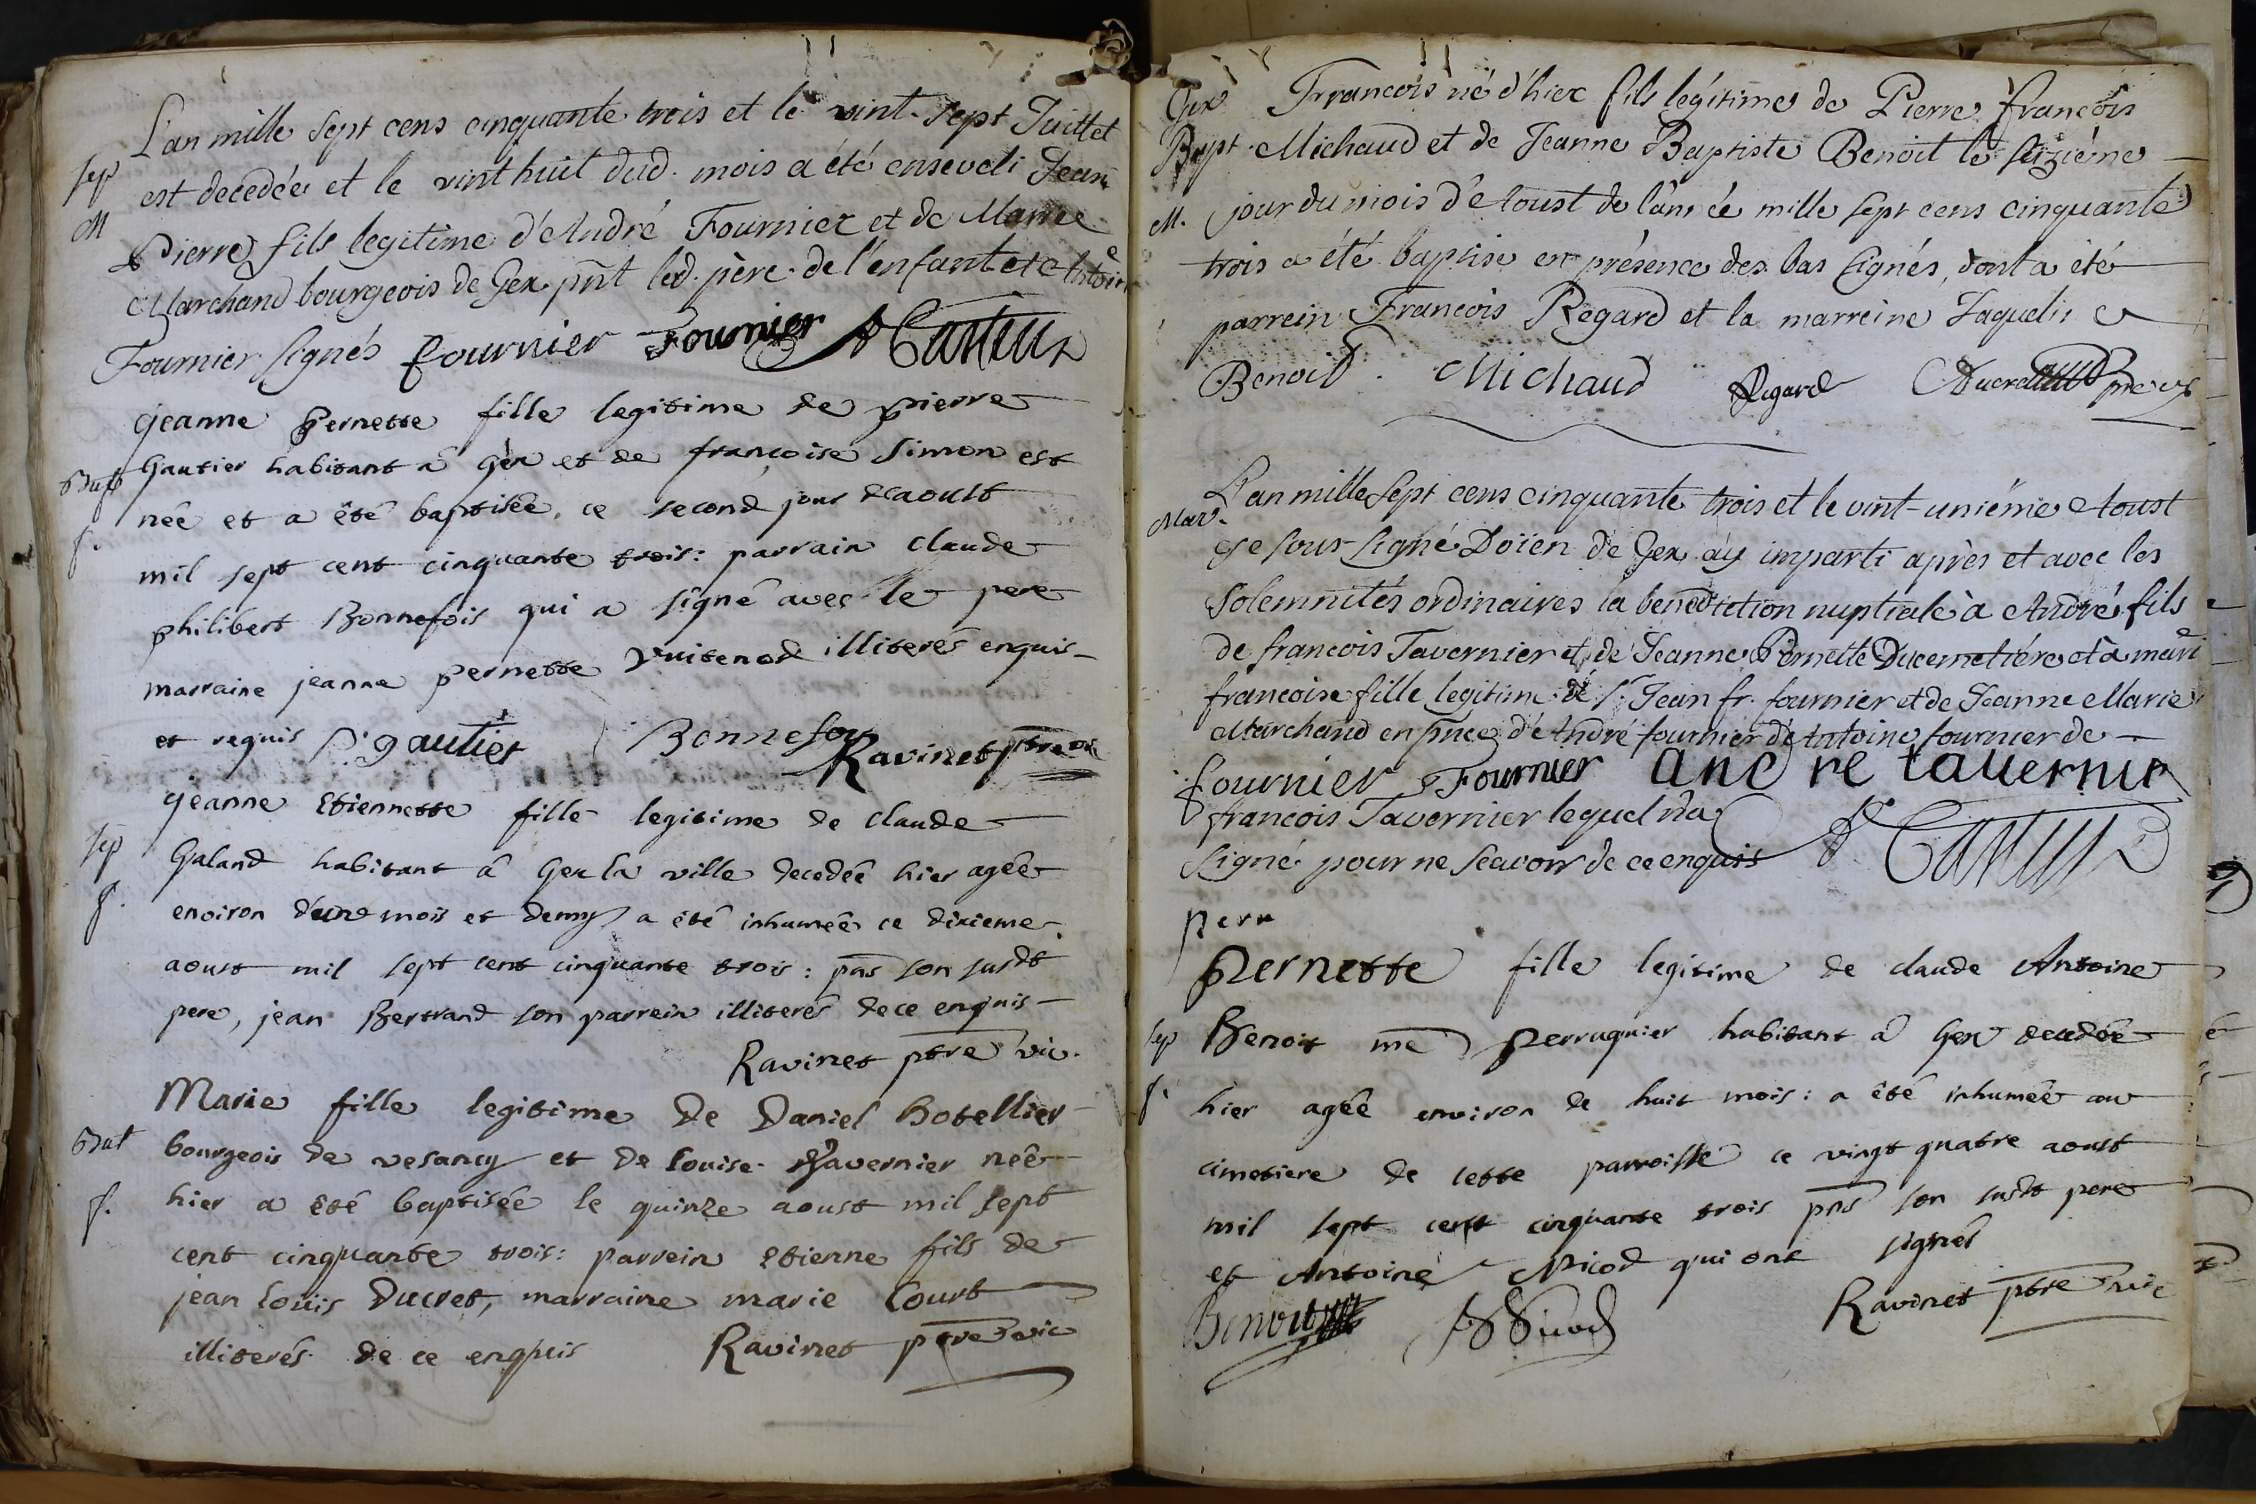 L'an mille sept cens cinquante trois et le vint-sept Juillet
sep est decedée et le vint huit dud. mois a été enseveli Jean
M Pierre fils legitime d'André Fournier et de Marie
Marchand bourgeois de Gex pñt led. père de l'enfant et
Fournier signés fournier Fournier
jeanne Pernette fille legitime de pierre
Bapt Gautier habitant a Gex et de françoise Simon est
f. née et a êté baptisée ce second jour d'aoust
mil sept cent cinquante trois: parrain claude
philibert Bonnefois qui a signé avec le pere
marraine jeanne pernette Vuitenod illiterés enquis
et requis P. gautier Bonnefoy Ravinet ptre vic
jeanne Etiennette fille legitime de claude
sep Galand habitant â Gex la ville decedée hier agée
f. environ d'un mois et demy a êté inhumée ce dixieme
aoust mil sept cent cinquante trois: pns son susdt
pere, jean Bertrand son parrein illiterés de ce enquis
Ravinet ptre vic.
Marie fille legitime de Daniel Hotellier
Bat bourgeois de vesancy et de Louise Tavernier née
f. hier a êté baptisée le quinze aoust mil sept
cent cinquante trois: parrein Etienne fils de
jean Louis Ducret, marraine marie Court
illiterés de ce enquis Ravinet ptre vic
Gex François né d'hier fils légitime de Pierre françois
Bapt. Michaud et de Jeanne Baptiste Benoit le sizième
M. jour du mois d'Aoust de l'année mille sept cens cinquante
trois a été baptisé en présence des bas signés, dont a été
parrein François Regard et la marreine Jaqueline
Benoit. Michaud Regard
L'an mille sept cens cinquante trois et le vint-unième Aoust
Mar. je sous-signé Doïen de Gex ay imparti après et avec les
solemnités ordinaires la bénédiction nuptiale à André fils
de françois Tavernier et de Jeanne Pernette Ducemetière et à
françoise fille legitime de Sr. Jean fr. fournier et de Jeanne Marie
Marchand en pñce d'André fournier d'Antoine fournier de
fournier Fournier andre tavernier
françois Tavernier lequel n'a
signé pour ne scavoir de ce enquis
pern
Pernette fille legitime de claude Antoine
sep Benoit me perruquier habitant â Gex decedée
f. hier agée environ de huit mois: a êté inhumée au
cimetiere de cette parroisse ce vingt quatre aoust
mil sept cent cinquante trois pns son susdt pere
et Antoine Nicod qui ont signés
Benoit Nicod Ravinet ptre vic